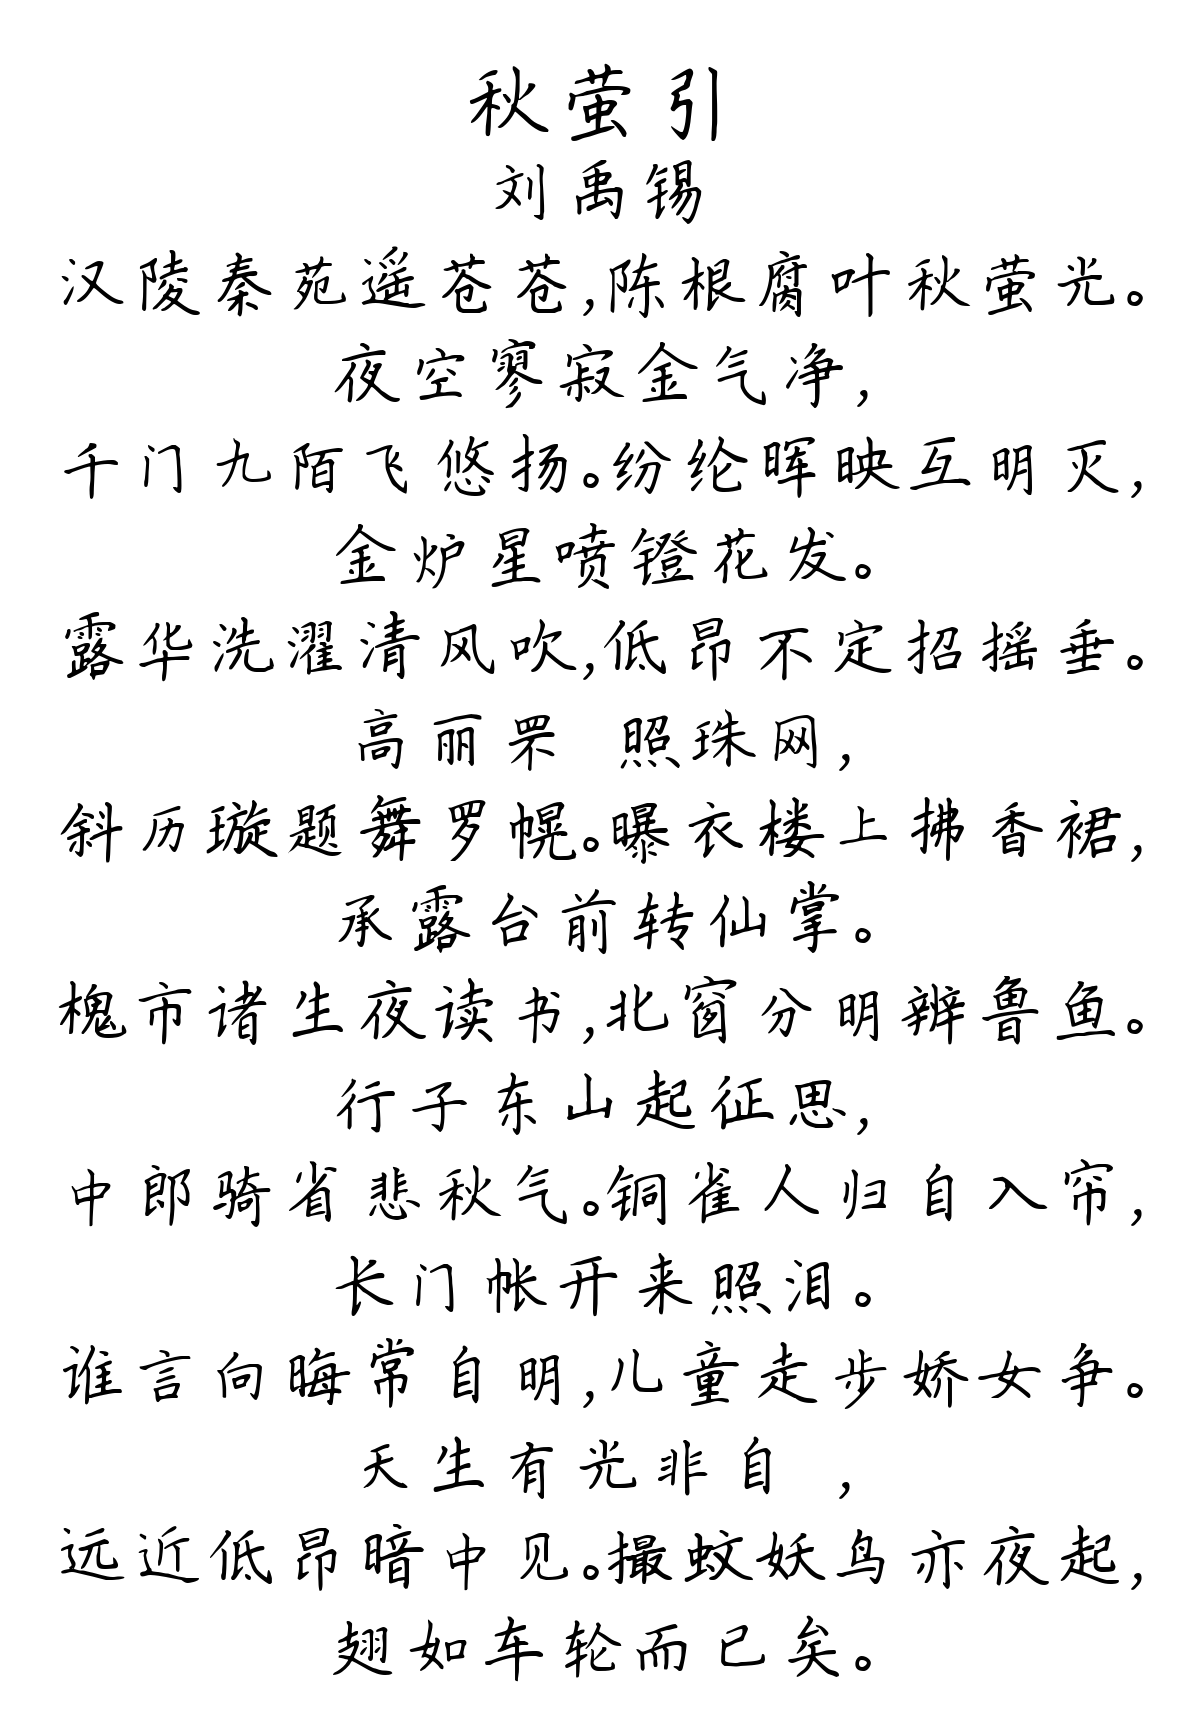 秋萤引
刘禹锡
汉陵秦苑遥苍苍,陈根腐叶秋萤光。
夜空寥寂金气净,
千门九陌飞悠扬。纷纶晖映互明灭,
金炉星喷镫花发。
露华洗濯清风吹,低昂不定招摇垂。
高丽罘 照珠网,
斜历璇题舞罗幌。曝衣楼上拂香裙,
承露台前转仙掌。
槐市诸生夜读书,北窗分明辨鲁鱼。
行子东山起征思,
中郎骑省悲秋气。铜雀人归自入帘,
长门帐开来照泪。
谁言向晦常自明,儿童走步娇女争。
天生有光非自 ,
远近低昂暗中见。撮蚊妖鸟亦夜起,
翅如车轮而已矣。